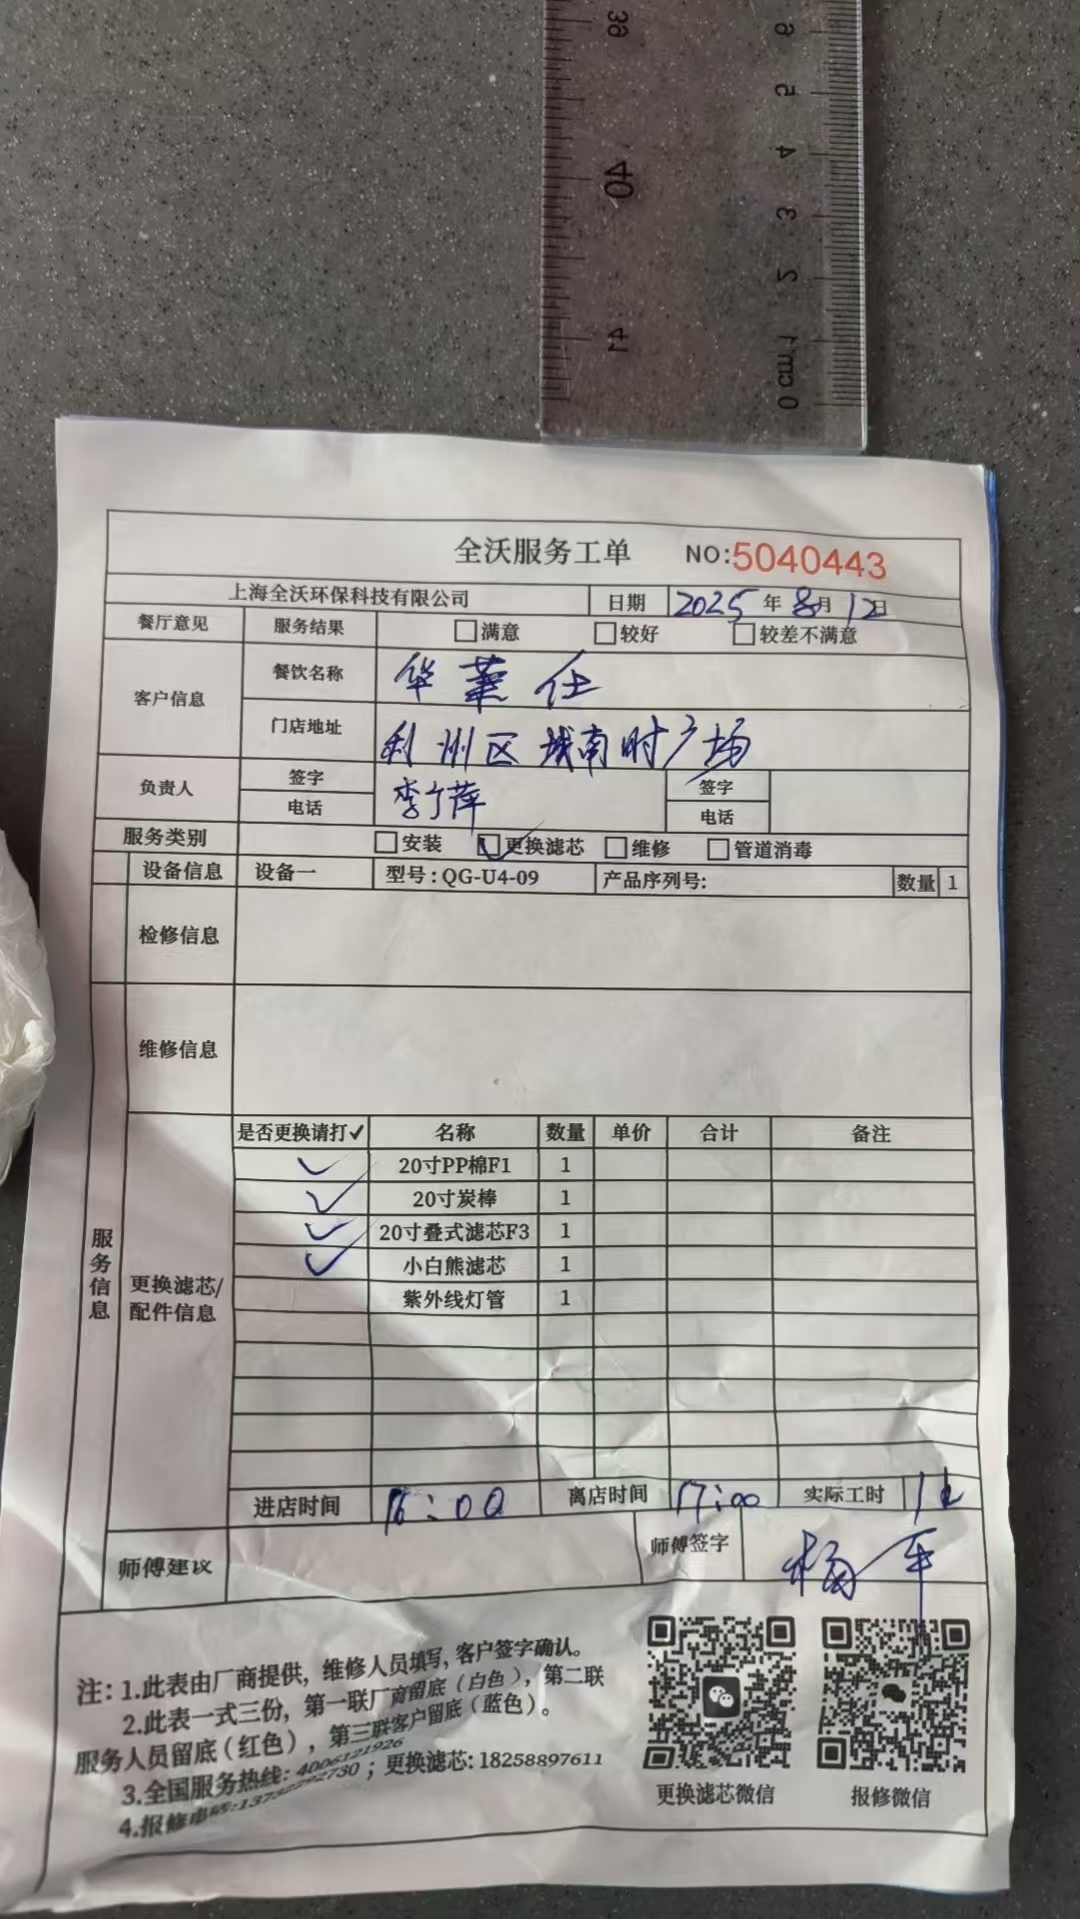 39
40
41
6
5
4
3
2
1
0 cm
全沃服务工单 NO:5040443
上海全沃环保科技有限公司 日期 2025年8月12日
餐厅意见 服务结果 满意 较好 较差不满意
客户信息 餐饮名称 华莱仕
门店地址 利州区城南时广场
负责人 签字 李丁萍 签字
电话 电话
服务类别 安装 更换滤芯 维修 管道消毒
设备信息 设备一 型号:QG-U4-09 产品序列号: 数量 1
检修信息
维修信息
服务信息
更换滤芯/配件信息
是否更换请打✓ 名称 数量 单价 合计 备注
✓ 20寸PP棉F1 1
✓ 20寸炭棒 1
✓ 20寸叠式滤芯F3 1
✓ 小白熊滤芯 1
紫外线灯管 1
进店时间 16:00 离店时间 17:00 实际工时 1
师傅建议 师傅签字
注:1.此表由厂商提供,维修人员填写,客户签字确认。
2.此表一式三份,第一联厂商留底(白色),第二联
服务人员留底(红色),第三联客户留底(蓝色)。
3.全国服务热线:4006121926
4.报修电话:13732292730;更换滤芯:18258897611
更换滤芯微信 报修微信